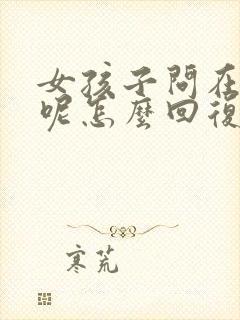 女孩子問在
呢怎麼回復
寒荒